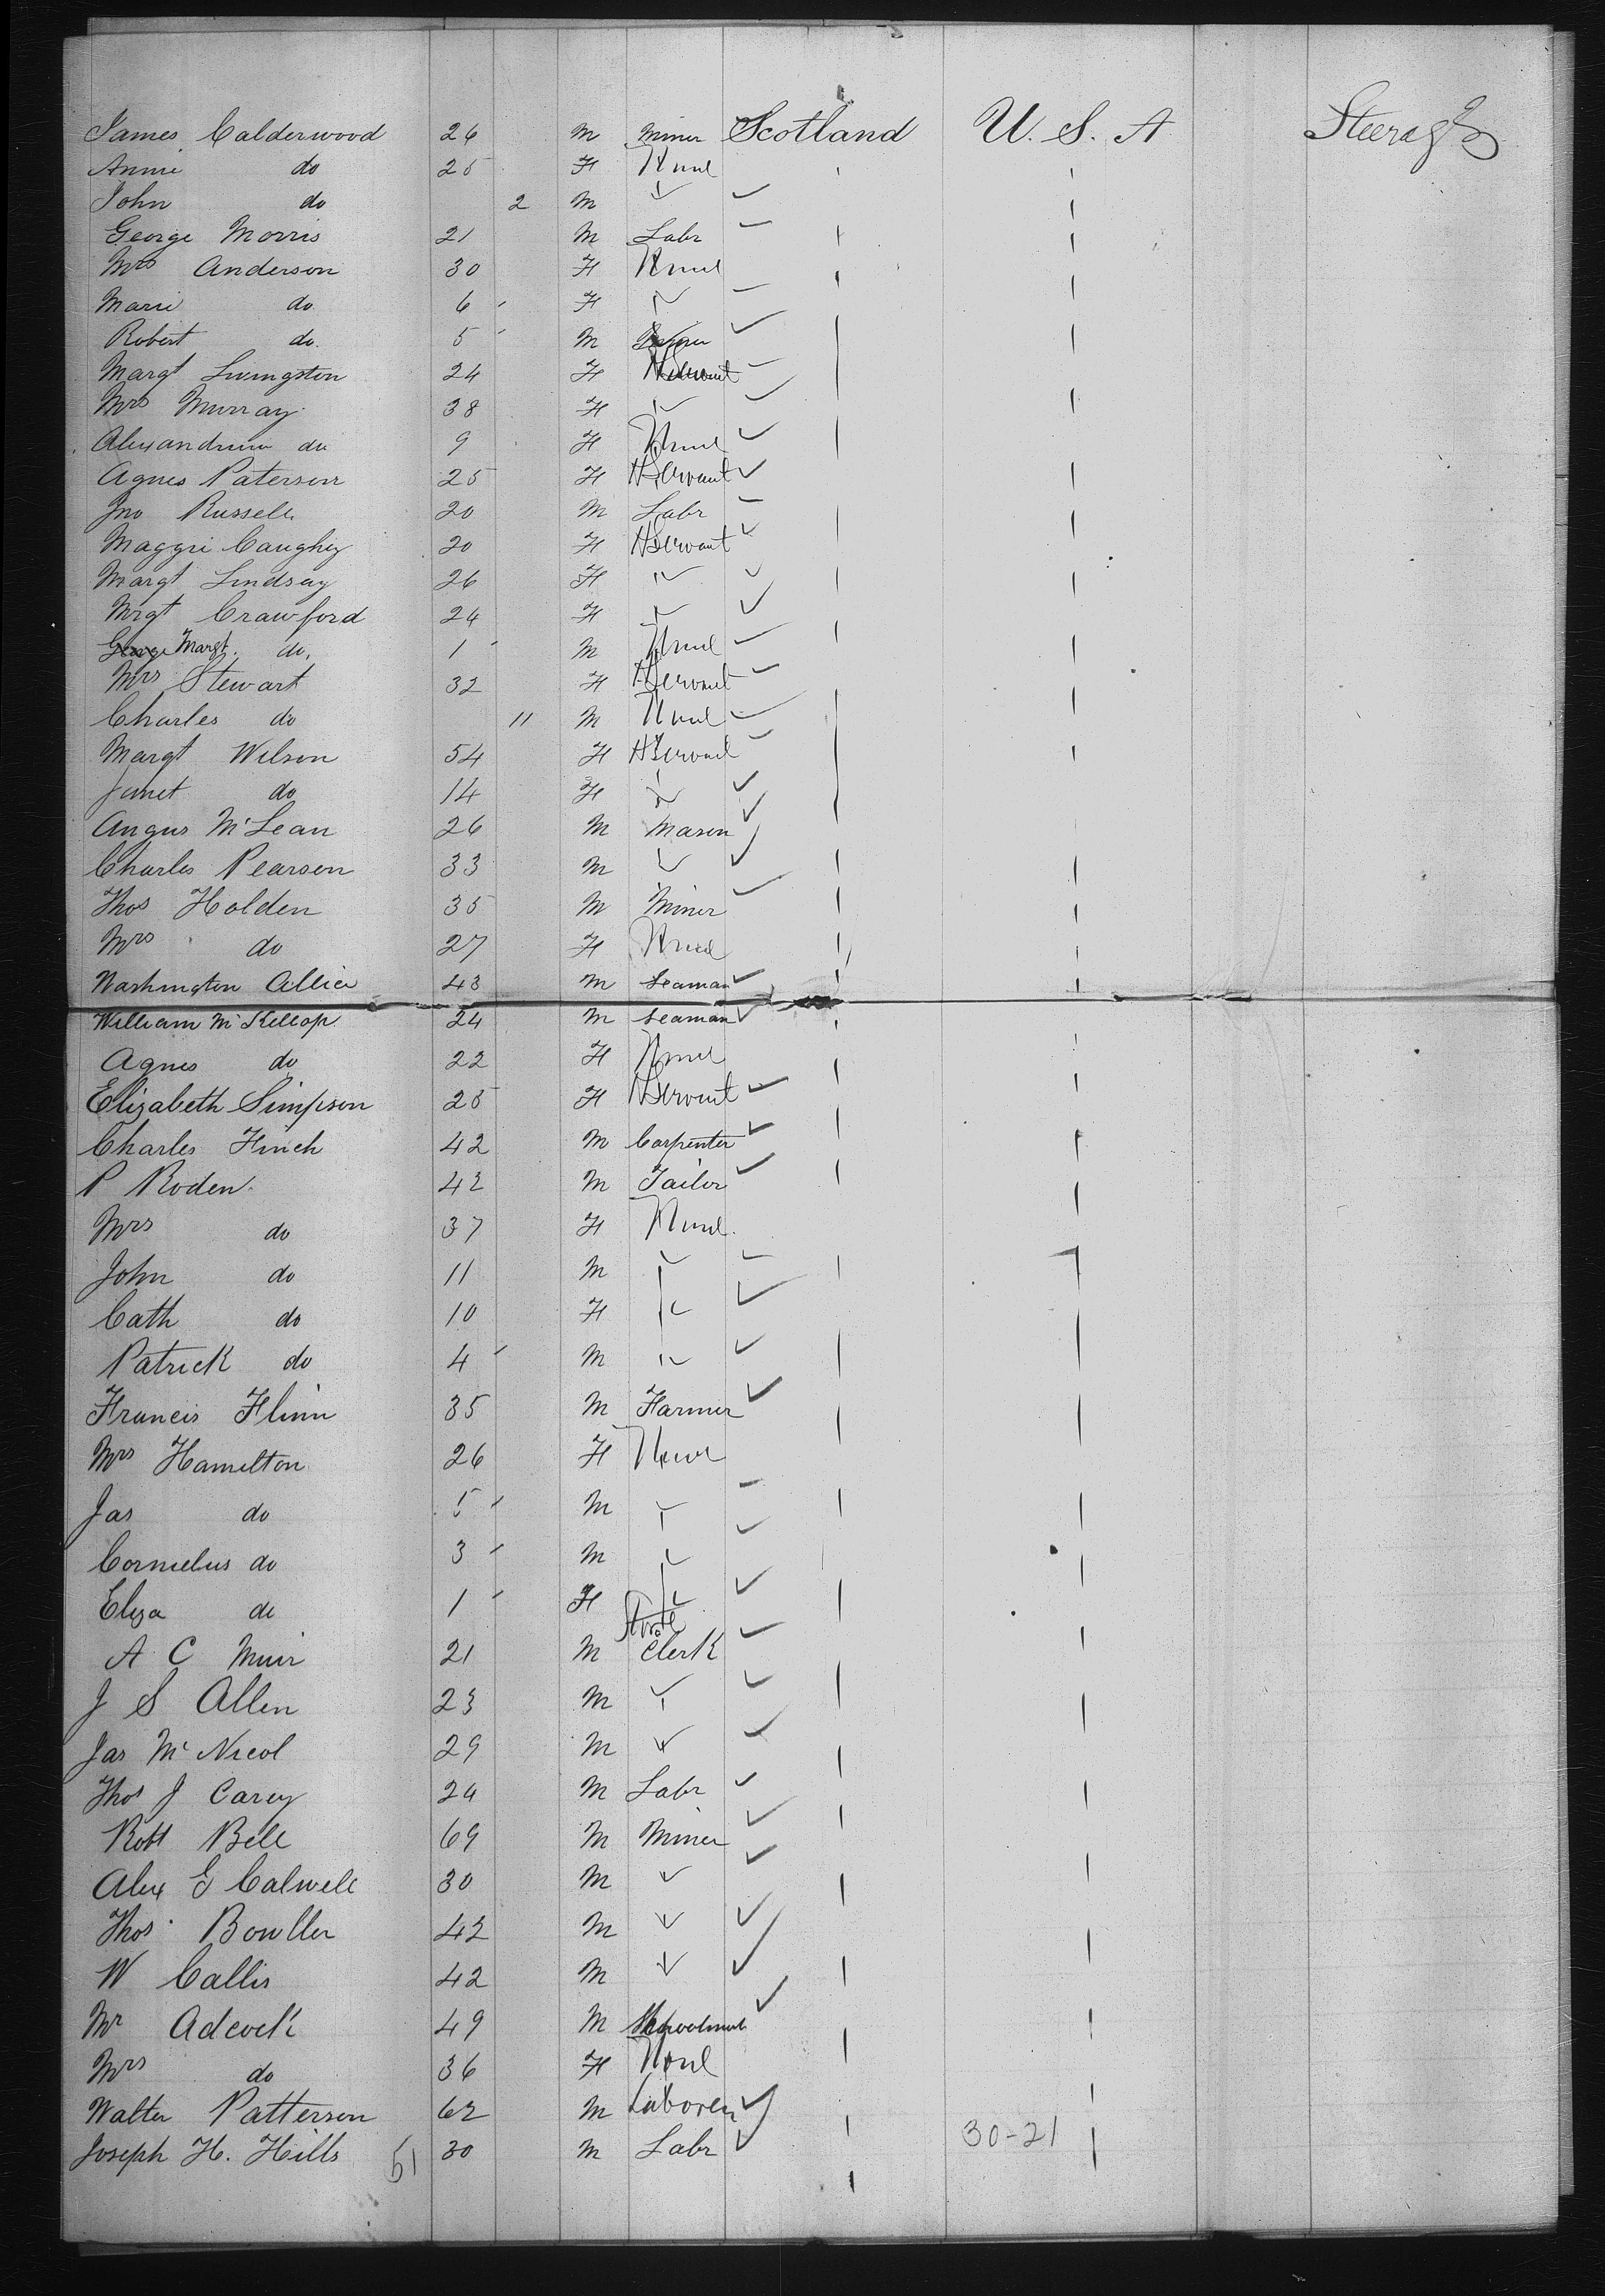 James Calderwood 26 M Miner Scotland U. S. A Steerage
Annie do 25 F None
John do 2 M
George Morris 21 M Labr
Mrs Anderson 30 F None
Marie do 6 F
Robert do 5 M
Margt Livingston 24 F
Mrs Murray 38 F
Alexandrina do 9 F None
Agnes Paterson 25 F HServant
Jno Russell 20 M Labr
Maggie Caughey 20 F HServant
Margt Lindsay 26 F
Mrgt Crawford 24 F
George Margt. do. 1 M None
Mrs Stewart 32 F HServant
Charles do 11 M None
Margt Wilson 54 F HServant
Janet do 14 F
Angus McLean 26 M Mason
Charles Pearson 33 M
Thos Holden 35 M Miner
Mrs do 27 F None
Washington 43 M Seaman
William McKellop 24 M Seaman
Agnes do 22 F None
Elizabeth Simpson 25 F HServant
Charles Finch 42 M Carpenter
P Roden 42 M Tailor
Mrs do 37 F None
John do 11 M
Cath do 10 F
Patrick do 4 M
Francis Flinn 35 M Farmer
Mrs Hamilton 26 F None
Jas do 5 M
Cornelius do 3 M
Eliza do 1 F
Store
A C Muir 21 M Clerk
J S Allen 23 M
Jas McNicol 29 M
Thos J Carey 24 M Labr
Robt Bell 69 M Miner
Alex G Calwell 30 M
Thos Bowller 42 M
W Callis 42 M
Mr Adcock 49 M
Mrs do 36 F None
Walter Patterson 62 M Laborer
Joseph H. Hills 51 30 M Labr 30-21